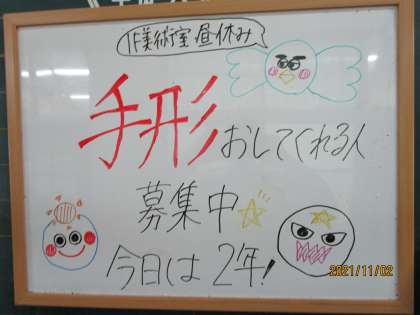 1F美術室 昼休み
手形おしてくれる人
募集中
今日は2年!
2021/11/02